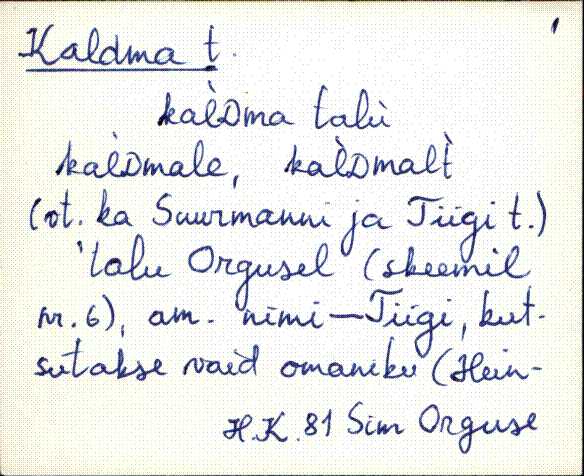 Kaldma t.
kàlDma talù
kàlDmale, kàlDmalt̀
(vt. ka Suurmanni ja Tiigi t.)
'talu Orgusel (skeemil
nr. 6), am. nimi—Tiigi, kut-
sutakse vaid omaniku (Hein-
H.K. 81 Sim Orguse